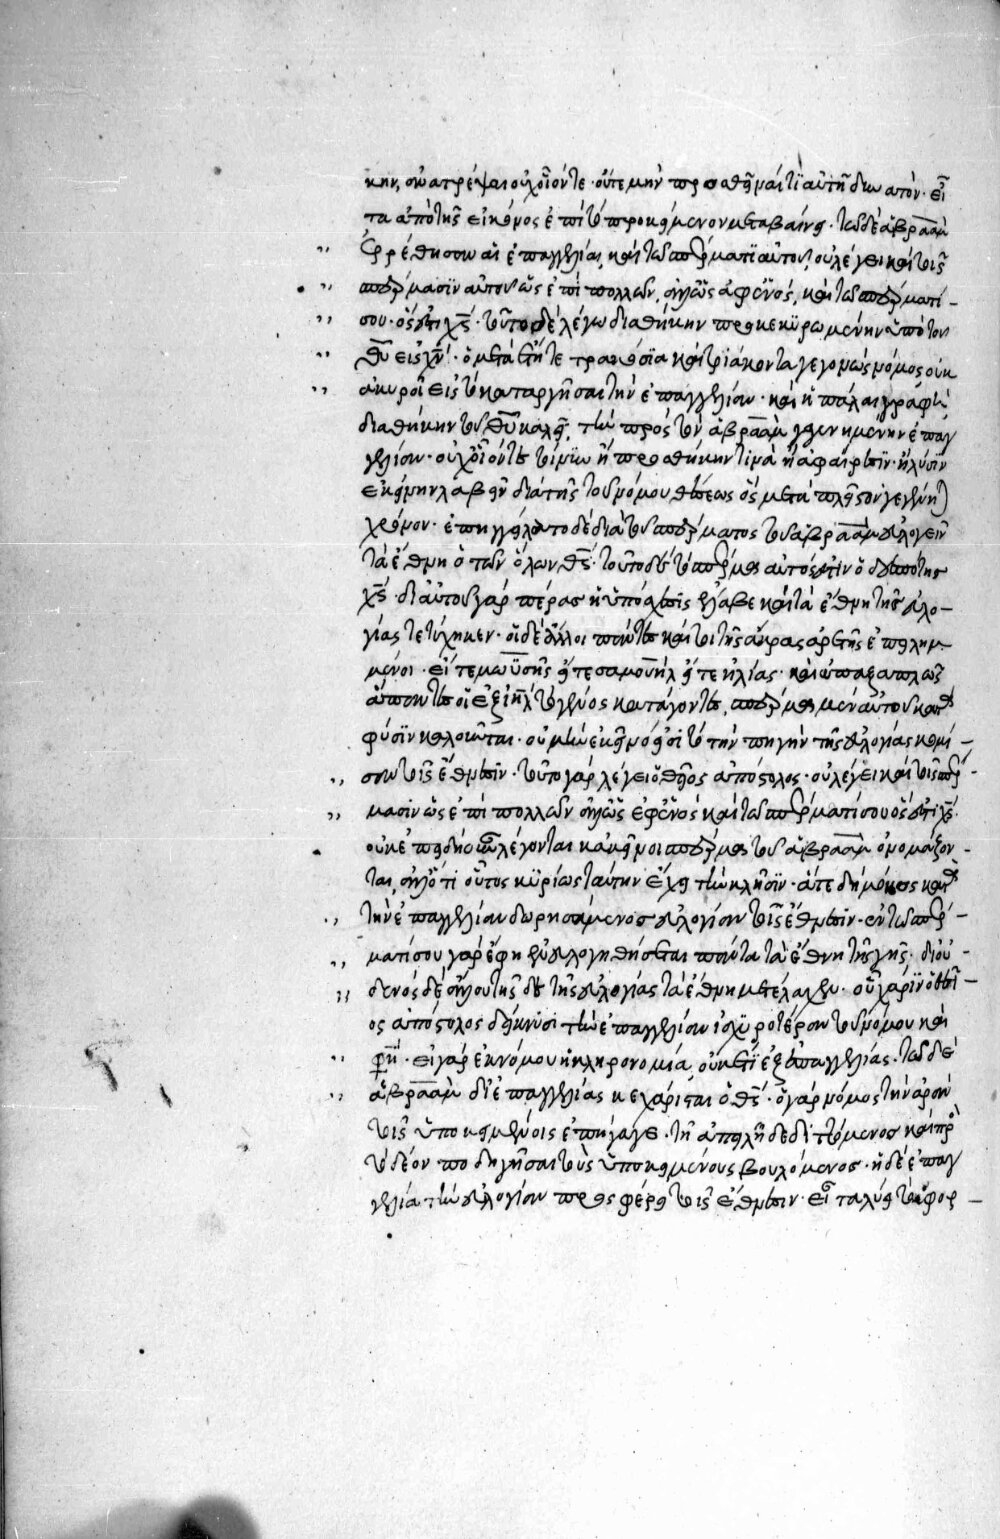 κην, ἀνατρέψαι οὐχ οἷόν τε· οὔτε μὴν προσθεῖναί τι αὐτῇ δυνατόν· εἶ
τα ἀπὸ τῆς εἰκόνος ἐπὶ τὸ προκείμενον μεταβαίνει· τῷ δὲ ἀβραὰμ
ἐρρέθησαν αἱ ἐπαγγελίαι, καὶ τῷ σπέρματι αὐτοῦ, οὐ λέγει καὶ τοῖς
σπέρμασιν αὐτοῦ ὡς ἐπὶ πολλῶν, ἀλλ' ὡς ἐφ' ἑνός, καὶ τῷ σπέρματί
σου· ὅς ἐστι χς· τοῦτο δὲ λέγω διαθήκην προκεκυρωμένην ὑπὸ τοῦ
θυ εἰς χν· ὁ μετὰ ἔτη τετρακόσια καὶ τριάκοντα γεγονὼς νόμος οὐκ
ἀκυροῖ εἰς τὸ καταργῆσαι τὴν ἐπαγγελίαν· καὶ ἡ πάλαι γραφὴ
διαθήκην τοῦ θυ καλεῖ, τὴν πρὸς τὸν ἀβραὰμ γεγενημένην ἐπαγ
γελίαν· οὐχ οἷόν τε τοίνυν ἢ προσθήκην τινὰ ἢ ἀφαίρεσιν ἢ λύσιν
ἐκείνην λαβεῖν διὰ τῆς τοῦ νόμου θέσεως ὃς μετὰ πλεῖστον γεγένηται
χρόνον· ἐπηγγείλατο δὲ διὰ τοῦ σπέρματος τοῦ ἀβραὰμ εὐλογεῖν
τὰ ἔθνη ὁ τῶν ὅλων θς· τοῦτο δὲ τὸ σπέρμα αὐτός ἐστιν ὁ δεσπότης
χς· δι' αὐτοῦ γὰρ πέρας ἡ ὑπόσχεσις ἔλαβε καὶ τὰ ἔθνη τῆς εὐλο-
γίας τετύχηκεν· οἱ δὲ ἄλλοι πάντες καὶ οἱ τῆς ἄκρας ἀρετῆς ἐπειλημ
μένοι· εἴτε μωϋσῆς εἴτε σαμουὴλ εἴτε ἠλίας· καὶ ἁπαξαπλῶς
ἅπαντες οἱ ἐξ ἰηλ τὸ γένος κατάγοντες, σπέρμα μὲν αὐτοῦ κατὰ
φύσιν καλοῦνται· οὐ μὴν ἐκεῖνό εἰσι τὸ τὴν πηγὴν τῆς εὐλογίας κομί-
σαν τοῖς ἔθνεσιν· τοῦτο γὰρ λέγει ὁ θεῖος ἀπόστολος· οὐ λέγει καὶ τοῖς σπέρ-
μασιν ὡς ἐπὶ πολλῶν ἀλλ' ὡς ἐφ' ἑνός καὶ τῷ σπέρματί σου ὅς ἐστι χς·
οὐκ ἐπειδὴ οὐ λέγονται κἀκεῖνοι σπέρμα τοῦ ἀβραὰμ ὀνομάζον-
ται, ἀλλ' ὅτι οὗτος κυρίως ταύτην ἔχει τὴν κλῆσιν· ἅτε δὴ μόνος κατὰ
τὴν ἐπαγγελίαν δωρησάμενος εὐλογίαν τοῖς ἔθνεσιν· ἐν τῷ σπέρ-
ματί σου γὰρ ἔφη εὐλογηθήσεται πάντα τὰ ἔθνη τῆς γῆς· δι' οὐ-
δενὸς δὲ ἄλλου τῆς δὲ τῆς εὐλογίας τὰ ἔθνη μετέλαχεν· οὗ χάριν ὁ θεῖ-
ος ἀπόστολος δείκνυσι τὴν ἐπαγγελίαν ἰσχυροτέραν τοῦ νόμου καί
φησί· εἰ γὰρ ἐκ νόμου ἡ κληρονομία, οὐκέτι ἐξ ἐπαγγελίας· τῷ δὲ
ἀβραὰμ δι' ἐπαγγελίας κεχάρισται ὁ θς· ὁ γὰρ νόμος τὴν ἀρὰν
τοῖς ὑποκειμένοις ἐπήγαγε· τῇ ἀπειλῇ δεδιττόμενος καὶ πρὸς
τὸ δέον ποδηγῆσαι τοὺς ὑποκειμένους βουλόμενος· ἡ δὲ ἐπαγ
γελία τὴν εὐλογίαν προσφέρει τοῖς ἔθνεσιν· εἶτα λύει τὸ ἄπορ-